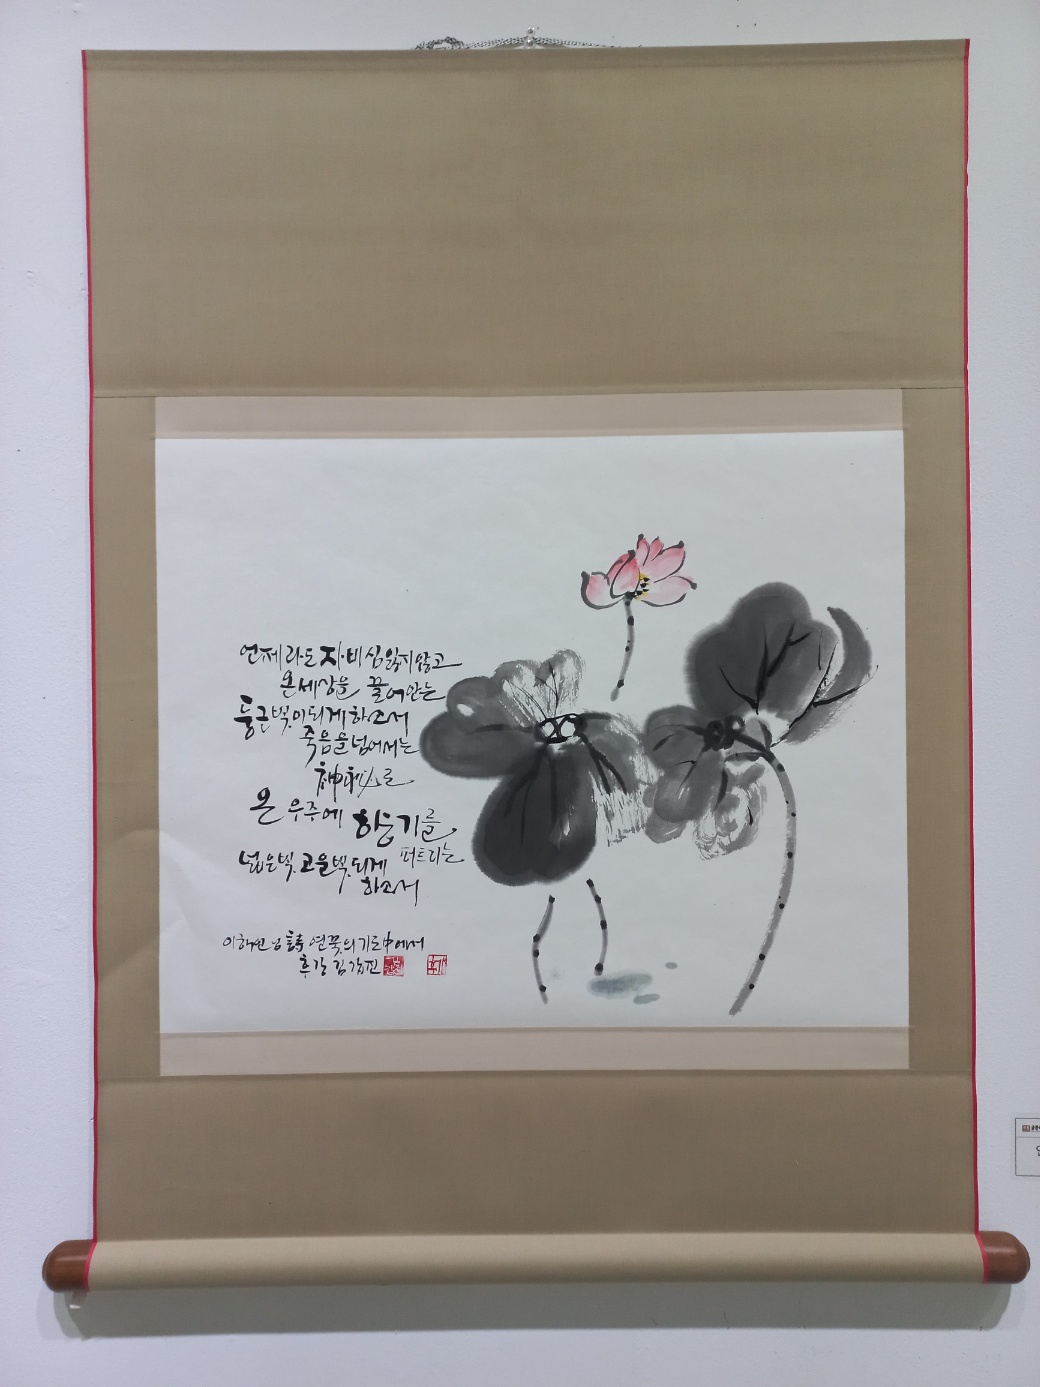 언제라도 자비심 잃지 않고
온 세상을 끌어안는
둥근 빛이 되게 하소서
죽음을 넘어서는
神秘로
온 우주에 향기를
퍼트리는
넓은 빛 고운 빛 되게
하소서
이해인님 詩 연꽃의 기도 中에서
후강